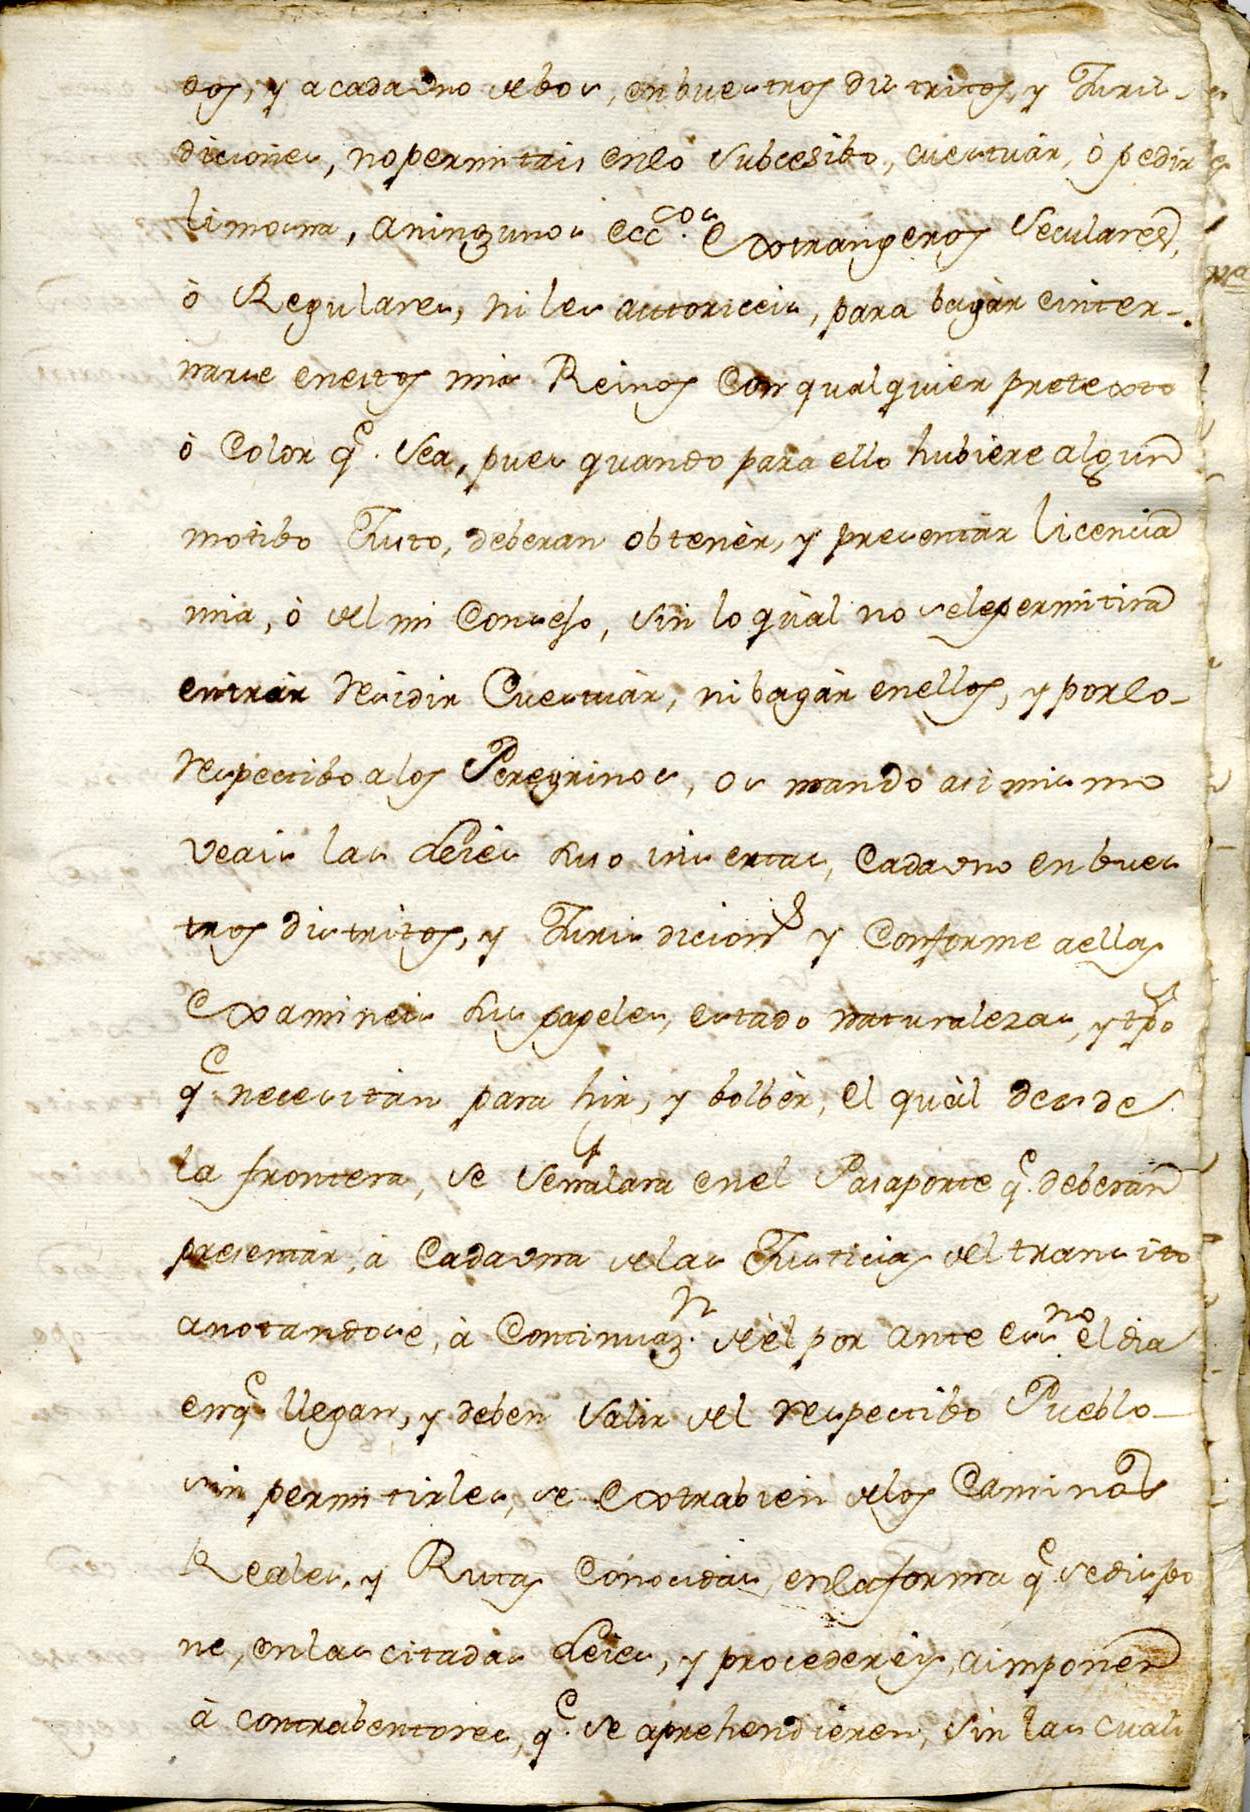 dos, y a cada vno de bos, en buestros distritos, y Juris-
diciones, no permitais en lo Subcesibo, cuestuàr, ò pedir
limosna, aningunos eccc.cos Extrangeros Seculares,
ò Regulares, ni les autoriceis, para bagàr e inter-
narse enestos mis Reinos Con qualquier pretexto
ò Color q.e Sea, pues quando para ello hubiere algun
motibo Justo, deberan obtenèr, y presentàr licencia
mia, ò del mi Consejo, Sin lo quàl no selepermitirà
entràr Residir Cuestuàr, ni bagàr enellos, y porlo-
Respectibo alos Peregrinos, os mando asimismo
Veais las Leies suso insertas, Cada vno en bues
tros distritos, y Jurisdicion.s y Conforme aellas
Examineis sus papeles, estado naturalezas, y tpo
q.e necesitàn para hir, y bolbèr, el quàl desde
la frontera, se Señalara enel Pasaporte q.e deberàn
presentàr, à Cada vna delas Justicias del transito
anotandose, à Continuaz.n de èl por ante ess.no el dia
en q.e llegan, y deben Salir del Respectibo Pueblo-
sin permitirles, se Extrabien delos Caminos
Reales, y Rutas Conocidas, enla forma q.e sedispo
ne, en las citadas Leies, y procedereis, a imponer
à contrabentores, q.e se aprehendieren, Sin las cuali